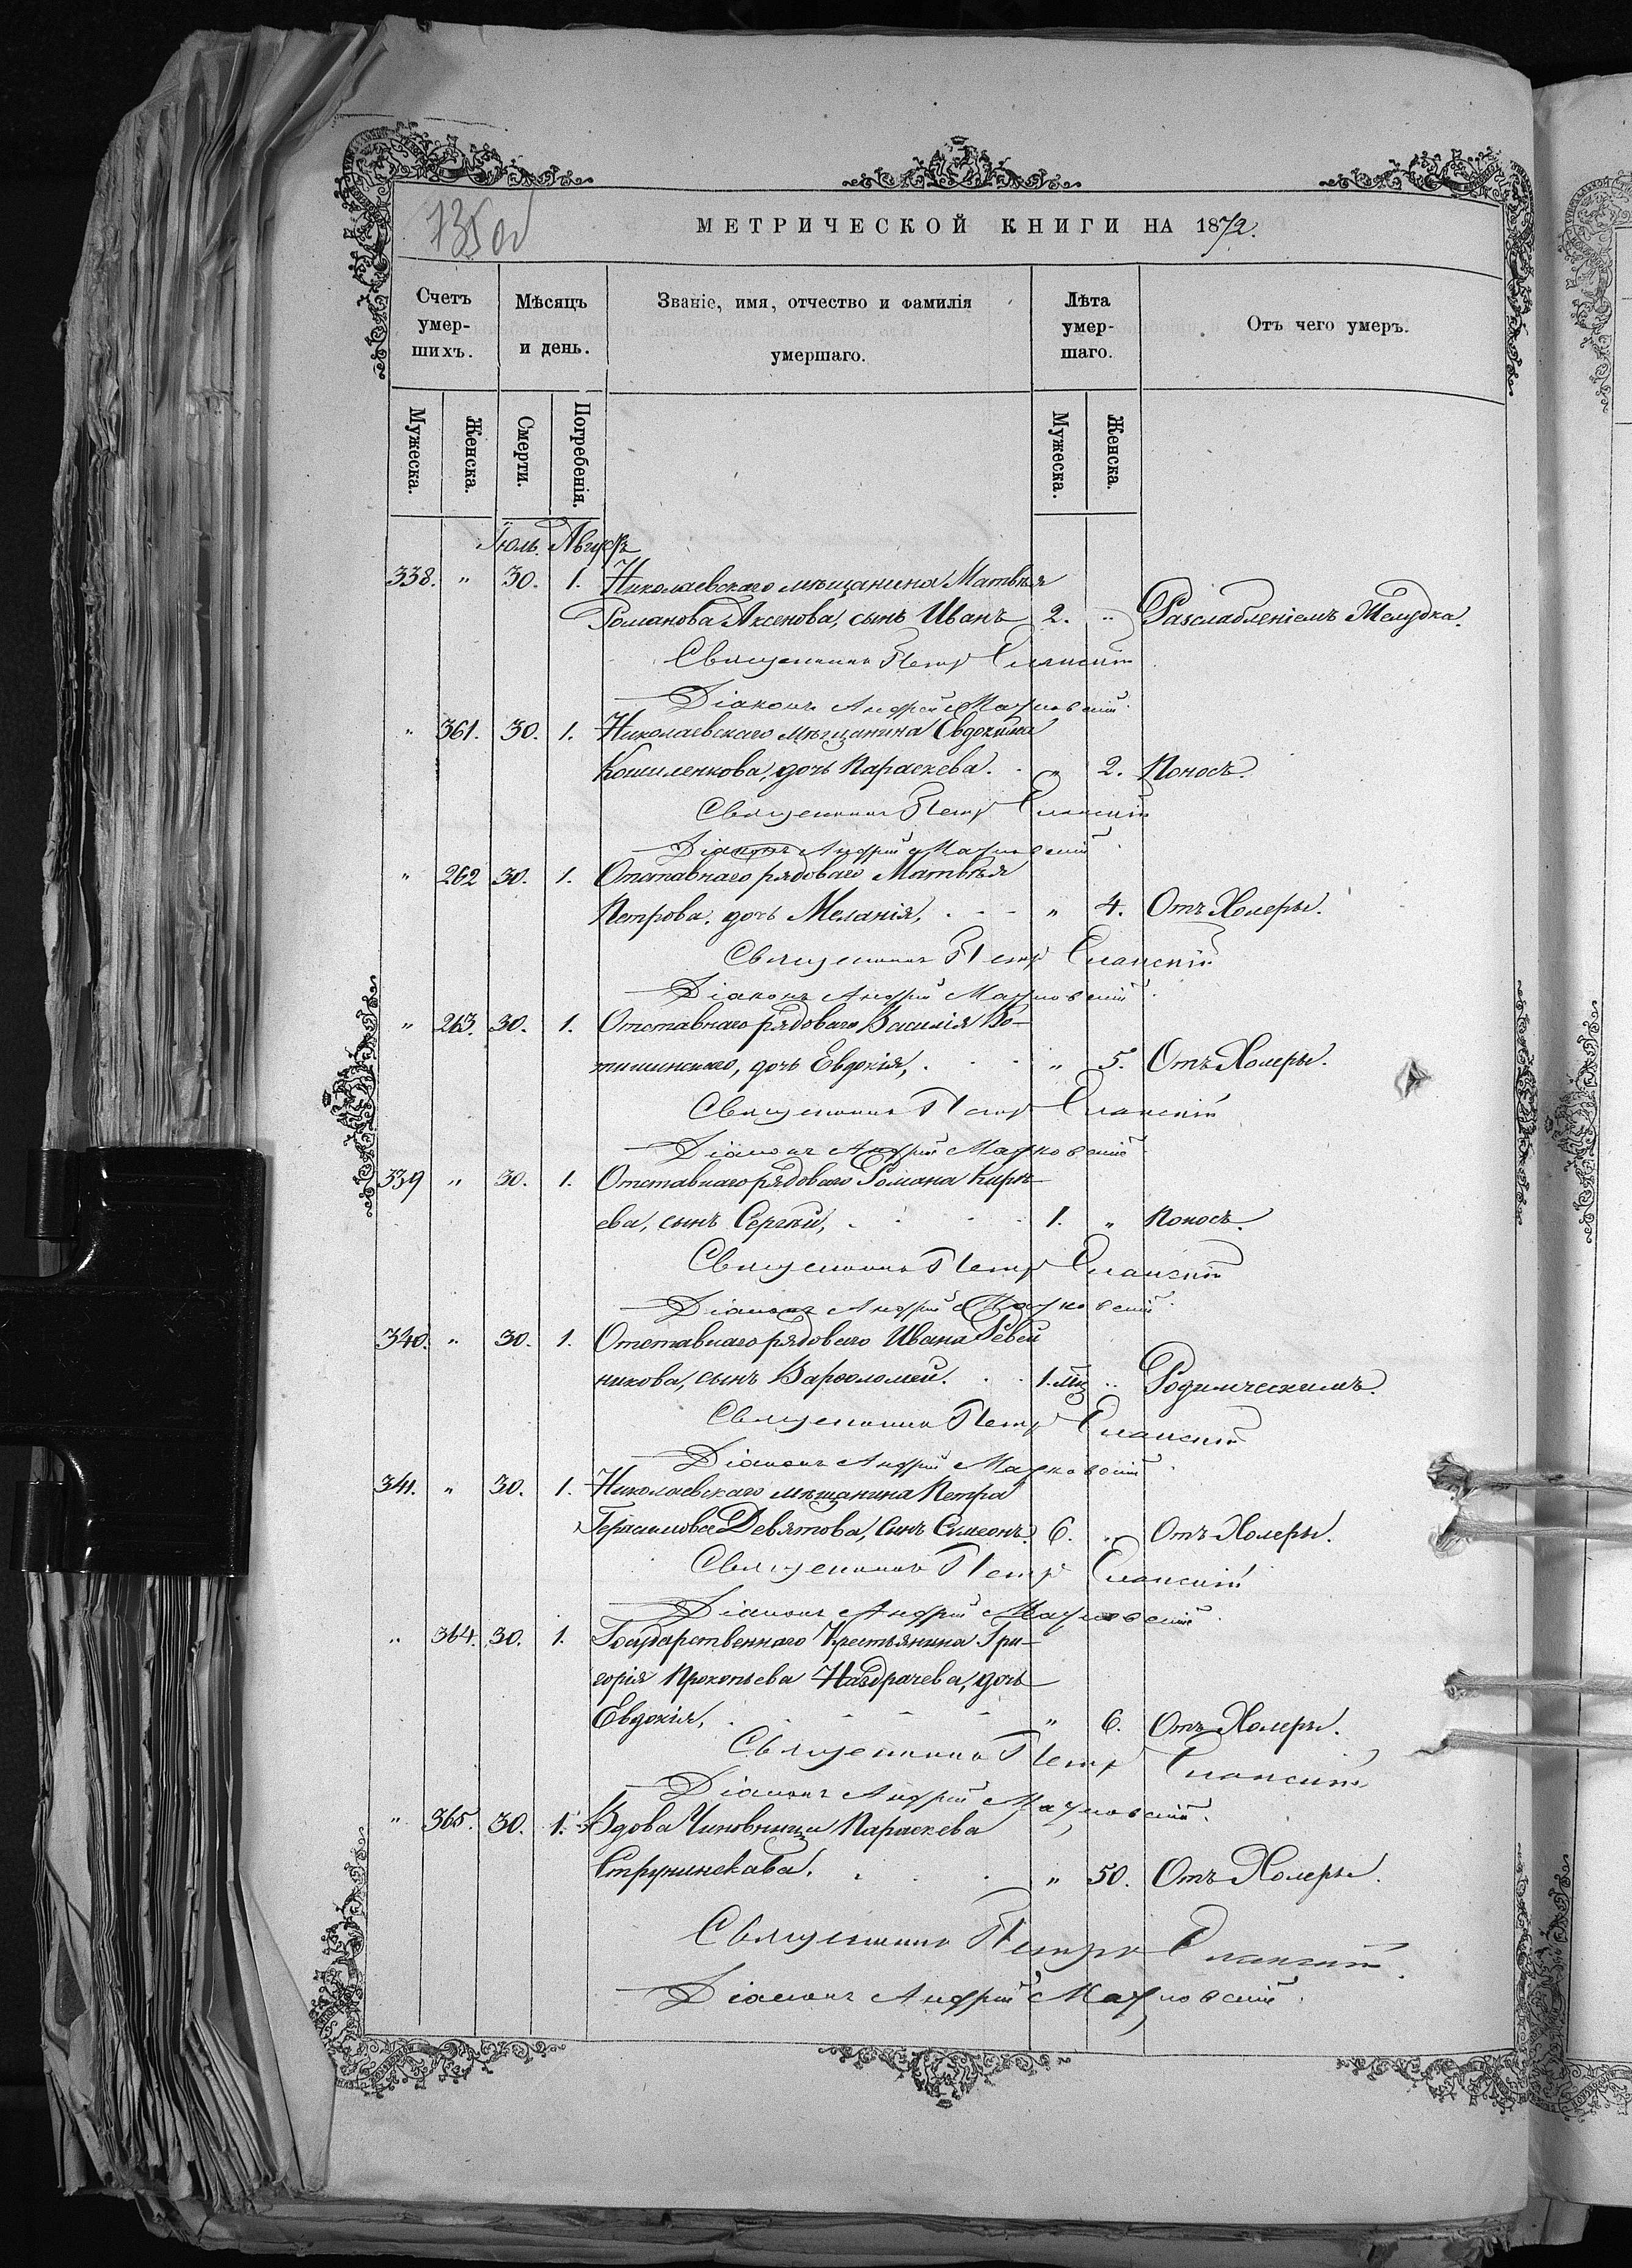 735 об
МЕТРИЧЕСКОЙ КНИГИ НА 1872.
Счетъ умер-шихъ.
Мѣсяцъ и день.
Званіе, имя, отчество и фамилія умершаго.
Лѣта умер-шаго.
Отъ чего умеръ.
Мужеска. Женска. Смерти. Погребенія. Мужеска. Женска.
Іюль. Августъ
338. " 30. 1. Николаевскаго мѣщанина Матвѣя
Романова Аксенова, сынъ Иванъ 2. " Разслабленіемъ Желудка.
Священникъ Петръ
Діаконъ Андрей
" 361. 30. 1. Николаевскаго мѣщанина Евдокима
Кошиленкова, дочь Параскева. " 2. Поносъ.
Священникъ Петръ
Діаконъ Андрей
" 262 30. 1. Отставнаго рядоваго Матвѣя
Петрова, дочь Меланія, " 4. Отъ Холеры.
Священникъ Петръ
Діаконъ Андрей
" 263. 30. 1. Отставнаго рядоваго Василія Во-
тишинскаго, дочь Евдокія, " 5. Отъ Холеры.
Священникъ Петръ
Діаконъ Андрей
339 " 30. 1. Отставнаго рядоваго Романа Кирѣ-
ева, сынъ Сергѣй, 1. " Поносъ.
Священникъ Петръ
Діаконъ Андрей
340. " 30. 1. Отставнаго рядоваго Ивана
никова, сынъ Варѳоломей. 1. мц " Родимческимъ.
Священникъ Петръ
Діаконъ Андрей
341. " 30. 1. Николаевскаго мѣщанина Петра
Герасимова Девятова, Сынъ Симеонъ. 6. " Отъ Холеры.
Священникъ Петръ
Діаконъ Андрей
" 364. 30. 1. Государственнаго Крестьянина Гри-
горія Прокопьева Наздрачева, дочь
Евдокія, " 6. Отъ Холеры.
Священникъ Петръ
Діаконъ Андрей
" 365. 30. 1. Вдова Чиновница Параскева
" 50. Отъ Холеры.
Священникъ Петръ
Діаконъ Андрей